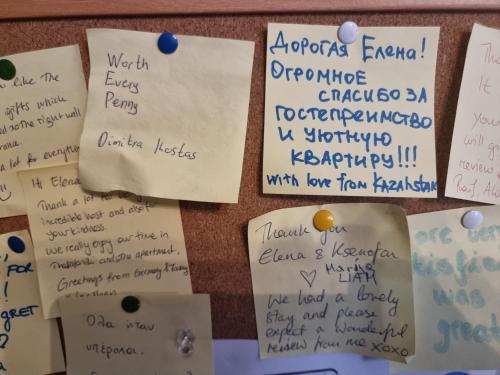 like The
gifts which
a lot for everything
Worth
Every
Penny
Dimitra Kostas
Дорогая Елена!
Огромное
спасибо за
гостепреимство
и уютную
квартиру!!!
with love from KAZAHSTAN
Hi Elena
Thank a lot for
incredible host and also for
your kindness.
We really enjoy our time in
and the apartment.
Greetings from Germany &
Thank you
Elena & Ksenofon
♡ Maria &
LIAM
We had a lovely
stay and please
expect a wonderful
review from me xoxo
Όλα ήταν
υπέροχα.
FOR
was
great